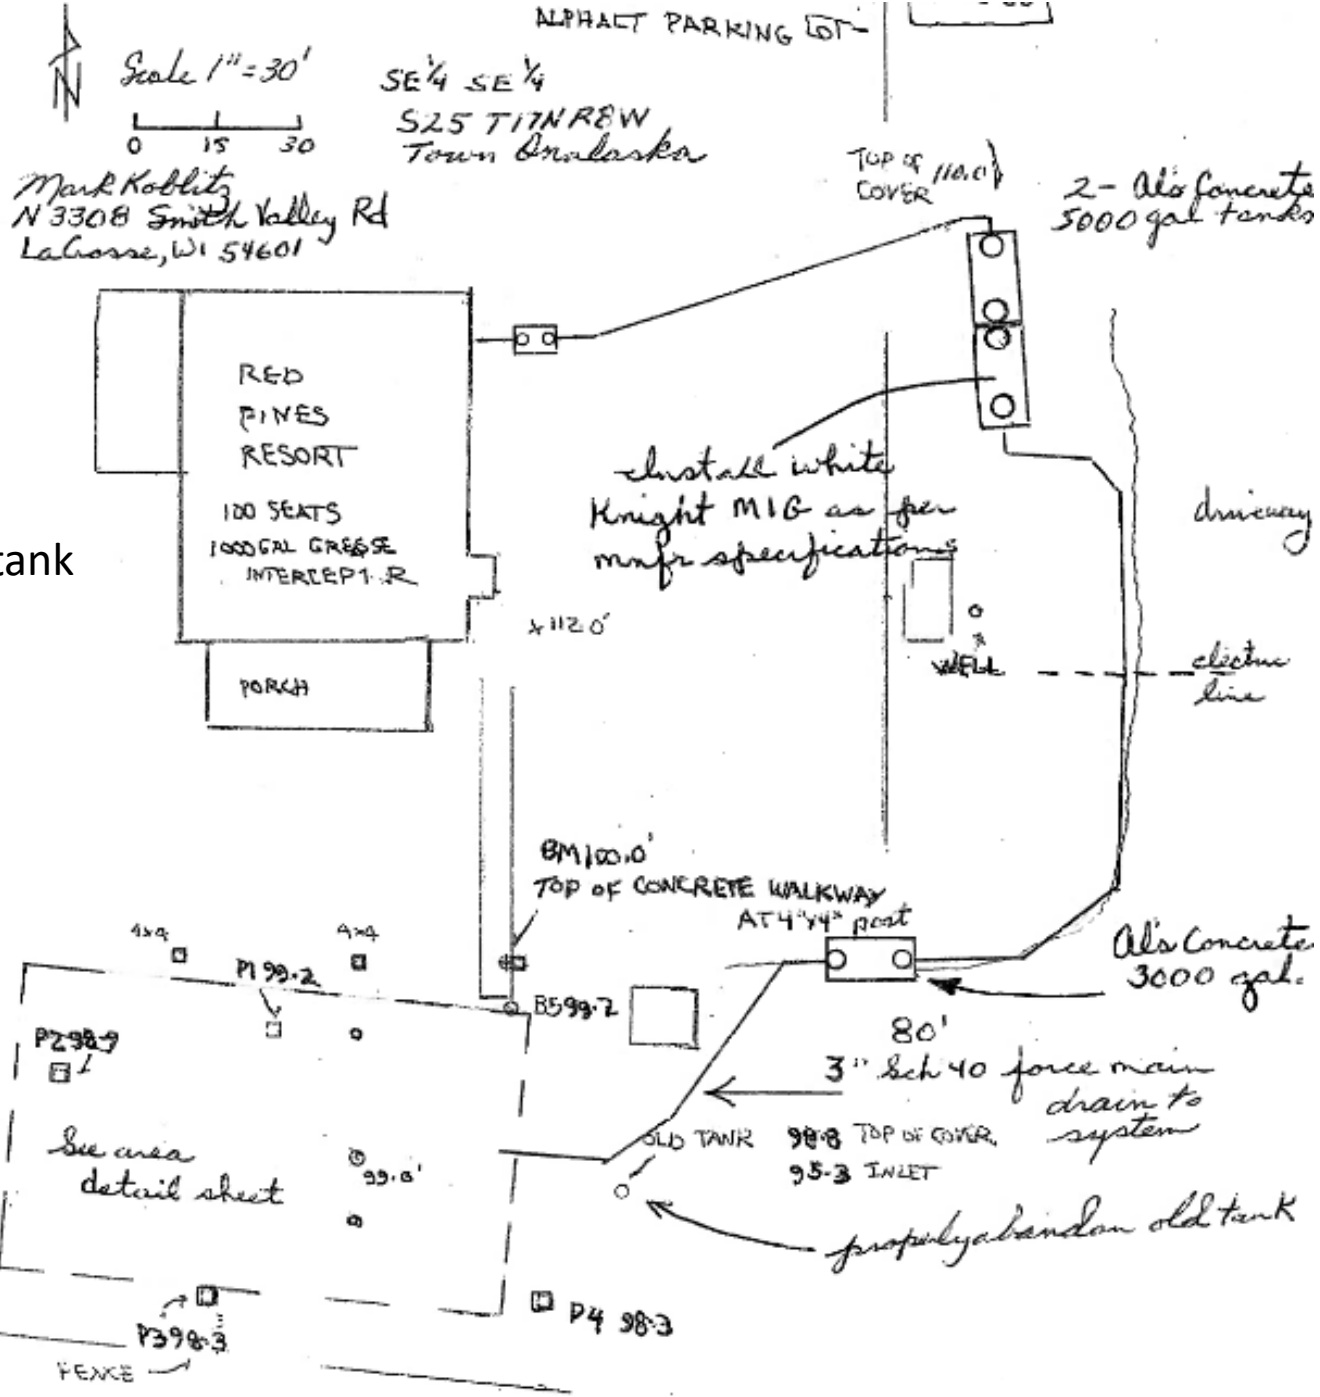 ALPHALT PARKING LOT
N
Scale 1" = 30'
0 15 30
SE 1/4 SE 1/4
S25 T17N R8W
Town Onalaska
Mark Koblitz
N 3308 Smith Valley Rd
LaCrosse, WI 54601
TOP OF
COVER
110.0'
2- Al's Concrete
5000 gal tanks
RED
PINES
RESORT
100 SEATS
1000 GAL GREASE
INTERCEPT R
tank
PORCH
Install white
Knight MIG as per
mnfr specifications
driveway
x 112.0'
WELL
electric
line
BM 100.0'
TOP OF CONCRETE WALKWAY
AT 4"x4" post
4x4
4x4
P1 99.2
P2 98.9
B5 99.2
Al's Concrete
3000 gal.
80'
3" Sch 40 force main
drain to
system
OLD TANK 98.8 TOP OF COVER
95.3 INLET
See area
detail sheet
99.0'
properly abandon old tank
P3 98.3
P4 98.3
FENCE